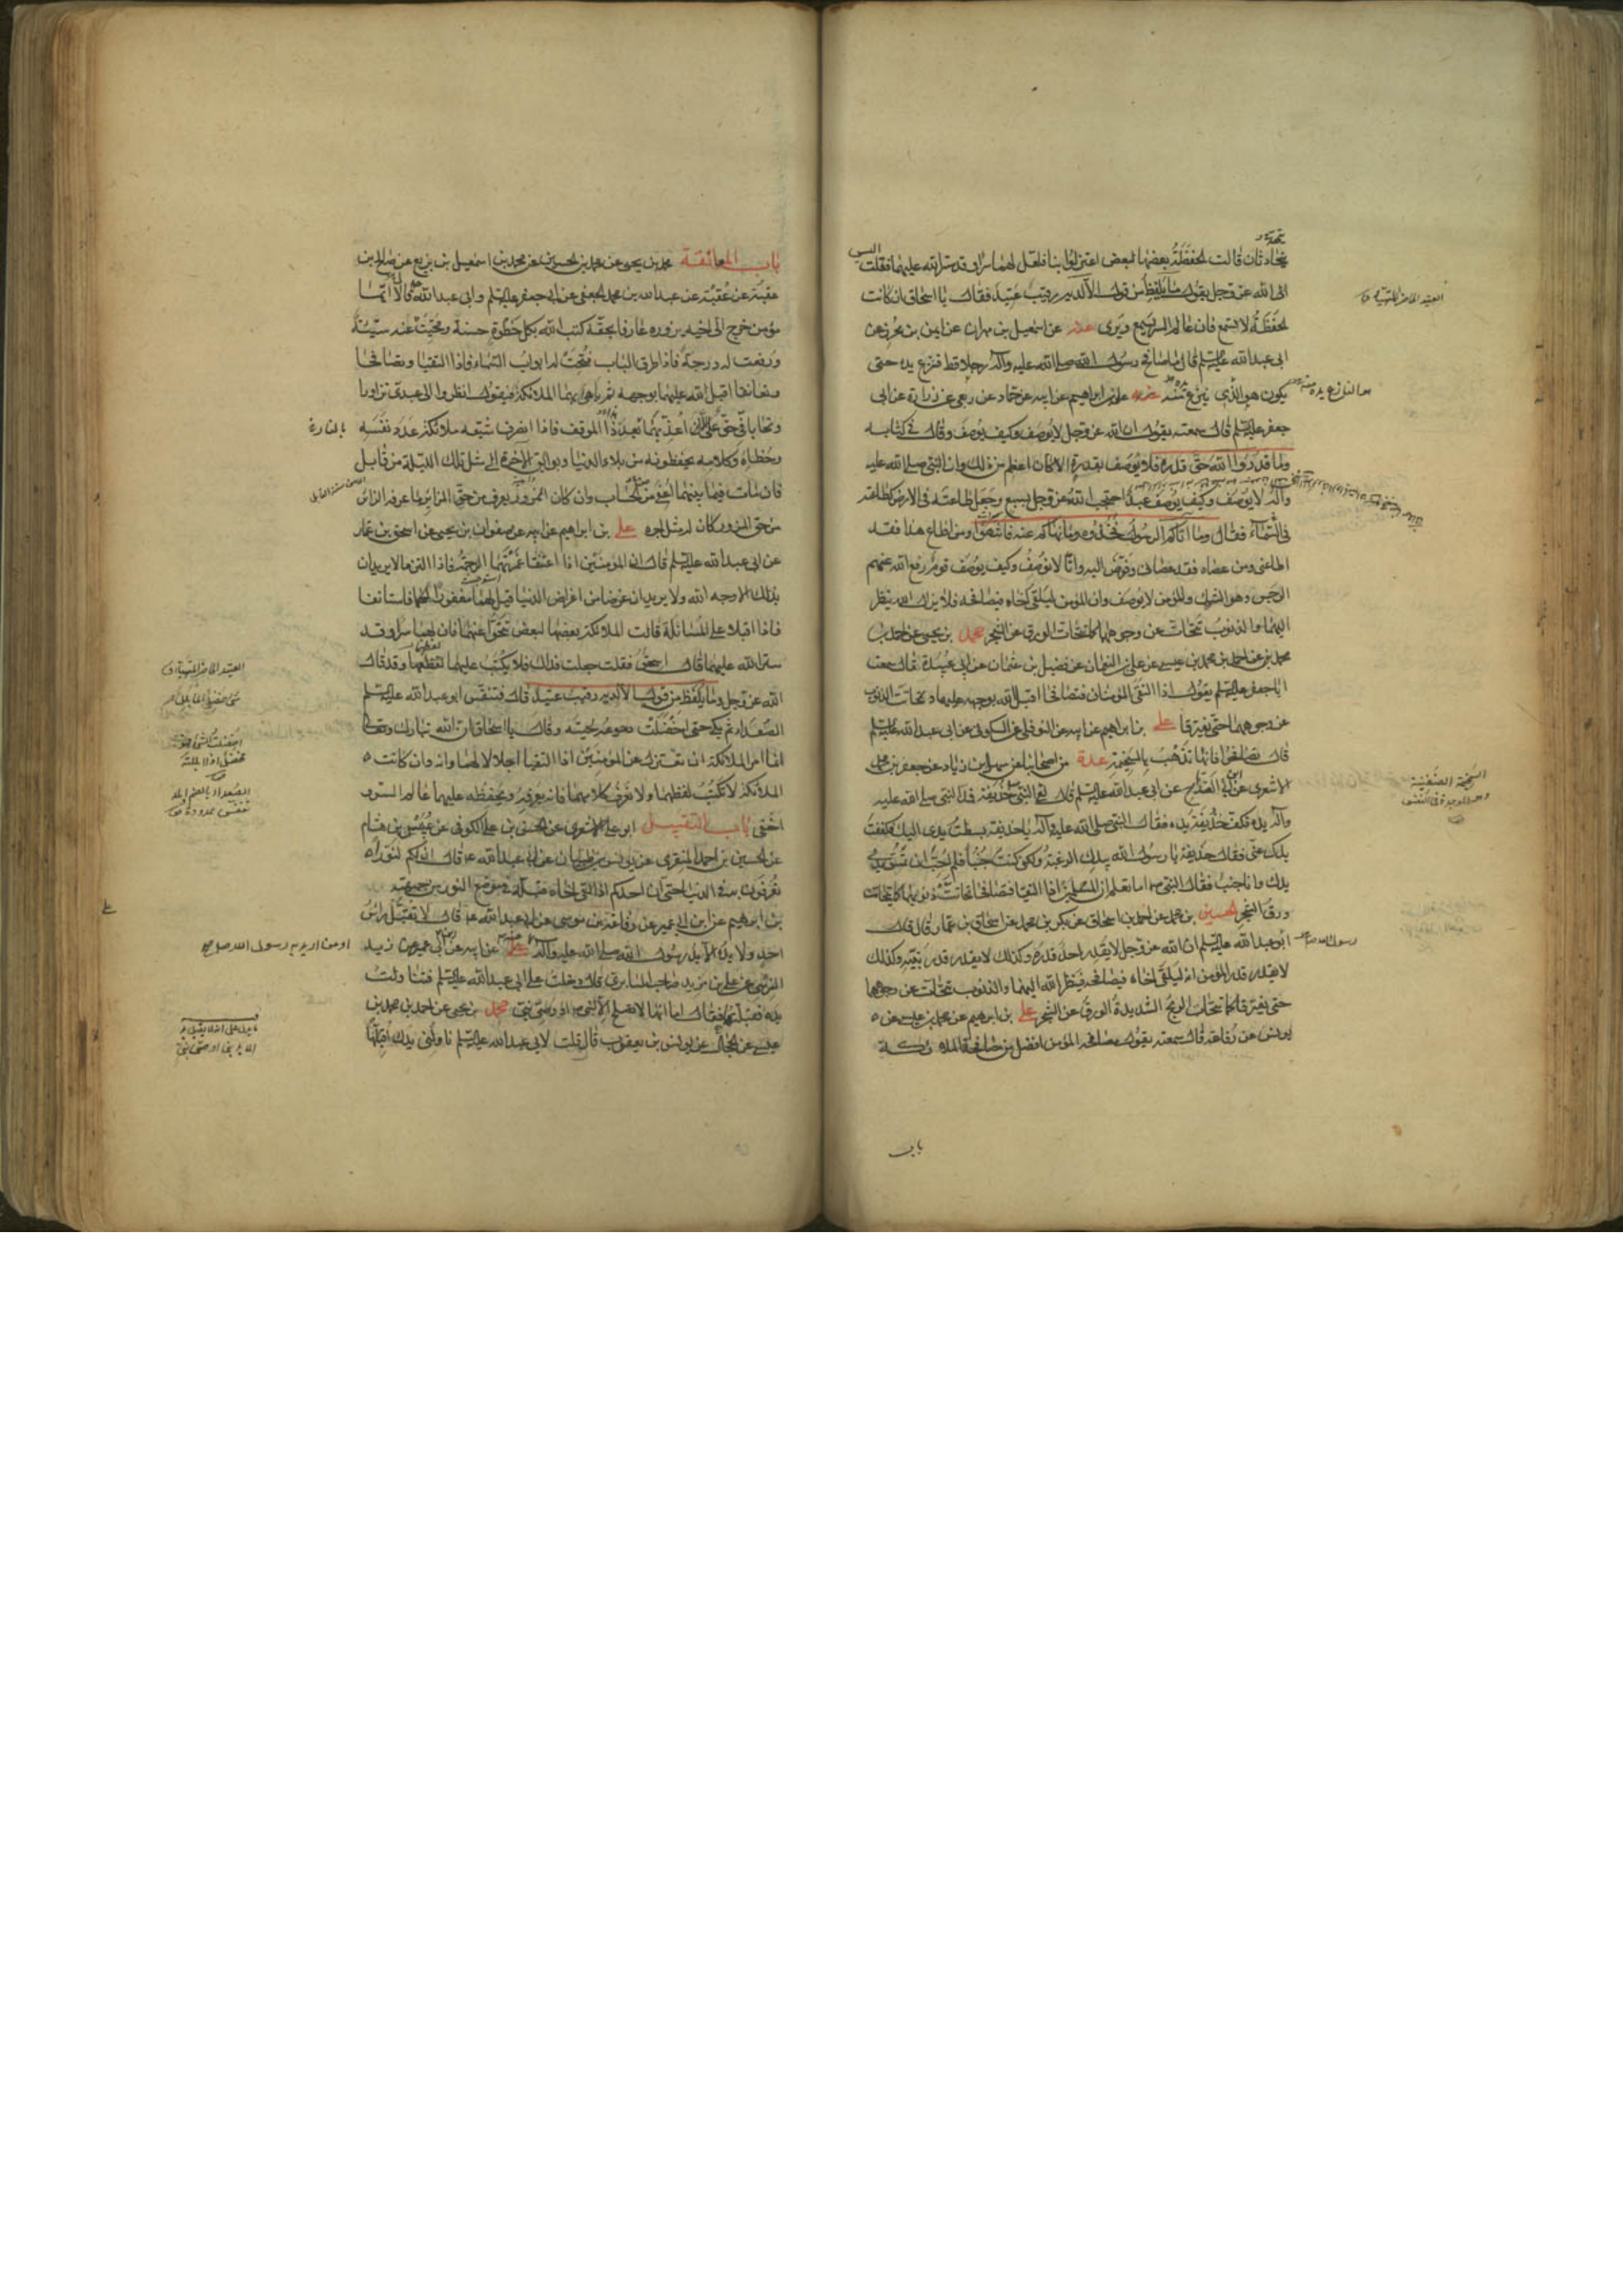 يتحدثان قالت الحفظة بعضها لبعض اعتزلوا بنا فلعل لهما سرا وقد ستر الله عليهما فقلت اليس
الله عز وجل يقول ما يلفظ من قول الا لديه رقيب عتيد فقال يا اسحاق ان كانت
الحفظة لا تسمع فان عالم السر يسمع ويرى عنه عن اسمعيل بن مهران عن ايمن بن محرز عن
ابى عبد الله عليه السلم قال ما صافح رسول الله صلى الله عليه وآله رجلا قط فنزع يده حتى
يكون هو الذى ينزع منه على بن ابراهيم عن ابيه عن حماد عن ربعى عن زرارة عن ابى
جعفر عليه السلم قال سمعته يقول ان الله عز وجل لا يوصف وكيف يوصف وقال فى كتابه
وما قدروا الله حق قدره فلا يوصف بقدرة الا كان اعظم من ذلك وان النبى صلى الله عليه
وآله لا يوصف وكيف يوصف عبد احتجب الله عز وجل بسبع وجعل طاعته فى الارض كطاعته
فى السماء فقال وما آتاكم الرسول فخذوه وما نهاكم عنه فانتهوا ومن اطاع هذا فقد
اطاعنى ومن عصاه فقد عصانى وفوض اليه وانا لا نوصف وكيف يوصف قوم رفع الله عنهم
الرجس وهو الشرك والمؤمن لا يوصف وان المؤمن ليلقى اخاه فيصافحه فلا يزال الله ينظر
اليهما والذنوب تتحات عن وجوههما كما يتحات الورق عن الشجر محمد بن يحيى عن احمد بن
محمد بن عيسى عن على بن النعمان عن فضيل بن عثمان عن ابى عبيدة قال سمعت
ابا جعفر عليه السلم يقول اذا التقى المؤمنان فتصافحا اقبل الله بوجهه عليهما وتحاتت الذنوب
عن وجوههما حتى يفترقا على بن ابراهيم عن ابيه عن النوفلى عن السكونى عن ابى عبد الله عليه السلم
قال تصافحوا فانها تذهب بالسخيمة عدة من اصحابنا عن سهل بن زياد عن جعفر بن محمد
الاشعرى عن ابن القداح عن ابى عبد الله عليه السلم قال لقى النبى حذيفة فمد النبى صلى الله عليه
وآله يده فكف حذيفة يده فقال النبى صلى الله عليه وآله يا حذيفة بسطت يدى اليك فكففت
يدك عنى فقال حذيفة يا رسول الله بيدك الرغبة ولكنى كنت جنبا فلم احب ان تمس يدى
يدك وانا جنب فقال النبى اما تعلم ان المسلمين اذا التقيا فتصافحا تحاتت ذنوبهما كما يتحات
ورق الشجر الحسين بن محمد عن احمد بن اسحاق عن بكر بن محمد عن اسحاق بن عمار قال قال
ابو عبد الله عليه السلم ان الله عز وجل لا يقدر احد قدره وكذلك لا يقدر قدر نبيه وكذلك
لا يقدر قدر المؤمن انه ليلقى اخاه فيصافحه فينظر الله اليهما والذنوب تتحات عن وجوههما
حتى يفترقا كما تتحات الريح الشديدة الورق عن الشجر على بن ابرهيم عن محمد بن عيسى عن
يونس عن رفاعة قال سمعته يقول مصافحة المؤمن افضل من مصافحة الملائكة
باب
العتيد الحاضر المهيأ ق
السخيمة الضغينة
والموجدة فى النفس
باب المعانقة محمد بن يحيى عن محمد بن الحسين عن محمد بن اسمعيل بن بزيع عن صالح بن
عقبة عن عبد الله بن محمد الجعفى عن ابى جعفر عليه السلم وابى عبد الله قالا ايما
مؤمن خرج الى اخيه يزوره عارفا بحقه كتب الله بكل خطوة حسنة ومحيت عنه سيئة
ورفعت له درجة فاذا طرق الباب فتحت له ابواب السماء فاذا التقيا وتصافحا
وتعانقا اقبل الله عليهما بوجهه ثم باهى بهما الملائكة فيقول انظروا الى عبدى تزاورا
وتحابا فى حق على ان لا اعذبهما بعد ذا الموقف فاذا انصرف شيعه ملائكة عدد نفسه
وخطاه وكلامه يحفظونه من بلاء الدنيا وبوائق الآخرة الى مثل تلك الليلة من قابل
فان مات فيما بينهما اعفى من الحساب وان كان المزور يعرف من حق الزائر ما عرفه الزائر
من حق المزور كان له مثل اجره على بن ابراهيم عن ابيه عن صفوان بن يحيى عن اسحق بن عمار
عن ابى عبد الله عليه السلم قال ان المؤمنين اذا اعتنقا غمرتهما الرحمة فاذا التزما لا يريدان
بذلك الا وجه الله ولا يريدان عرضا من اغراض الدنيا قيل لهما مغفورا لكما فاستانفا
فاذا اقبلا على المسائلة قالت الملائكة بعضها لبعض تنحوا عنهما فان لهما سرا وقد
ستر الله عليهما قال اسحق فقلت جعلت فداك فلا يكتب عليهما لفظهما وقد قال
الله عز وجل وما يلفظ من قول الا لديه رقيب عتيد قال فتنفس ابو عبد الله عليه السلم
الصعداء ثم بكى حتى اخضلت دموعه لحيته وقال يا اسحاق ان الله تبارك وتعالى
انما امر الملائكة ان تعتزل عن المؤمنين اذا التقيا اجلالا لهما وانه وان كانت
الملائكة لا تكتب لفظهما ولا تعرف كلامهما فانه يعرفه ويحفظه عليهما عالم السر و
اخفى باب التقبيل ابو على الاشعرى عن الحسن بن على الكوفى عن عبيس بن هشام
عن الحسين بن احمد المنقرى عن يونس بن ظبيان عن ابى عبد الله قال ان لكم لنورا
تعرفون به فى الدنيا حتى ان احدكم اذا لقى اخاه قبله فى موضع النور من جبهته
بن ابرهيم عن ابن ابى عمير عن رفاعة بن موسى عن ابى عبد الله قال لا تقبل راس
احد ولا يده الا يد رسول الله صلى الله عليه وآله على عن ابيه عن ابن ابى عمير عن زيد
النرسى عن على بن مزيد صاحب السابرى قال دخلت على ابى عبد الله عليه السلم فتناولت
يده فقبلتها فقال اما انها لا تصلح الا لنبى او وصى نبى محمد بن يحيى عن احمد بن محمد بن
عيسى عن الحجال عن يونس بن يعقوب قال قلت لابى عبد الله عليه السلم ناولنى يدك اقبلها
العتيد الحاضر المهيأ ق
او من اريد به رسول الله